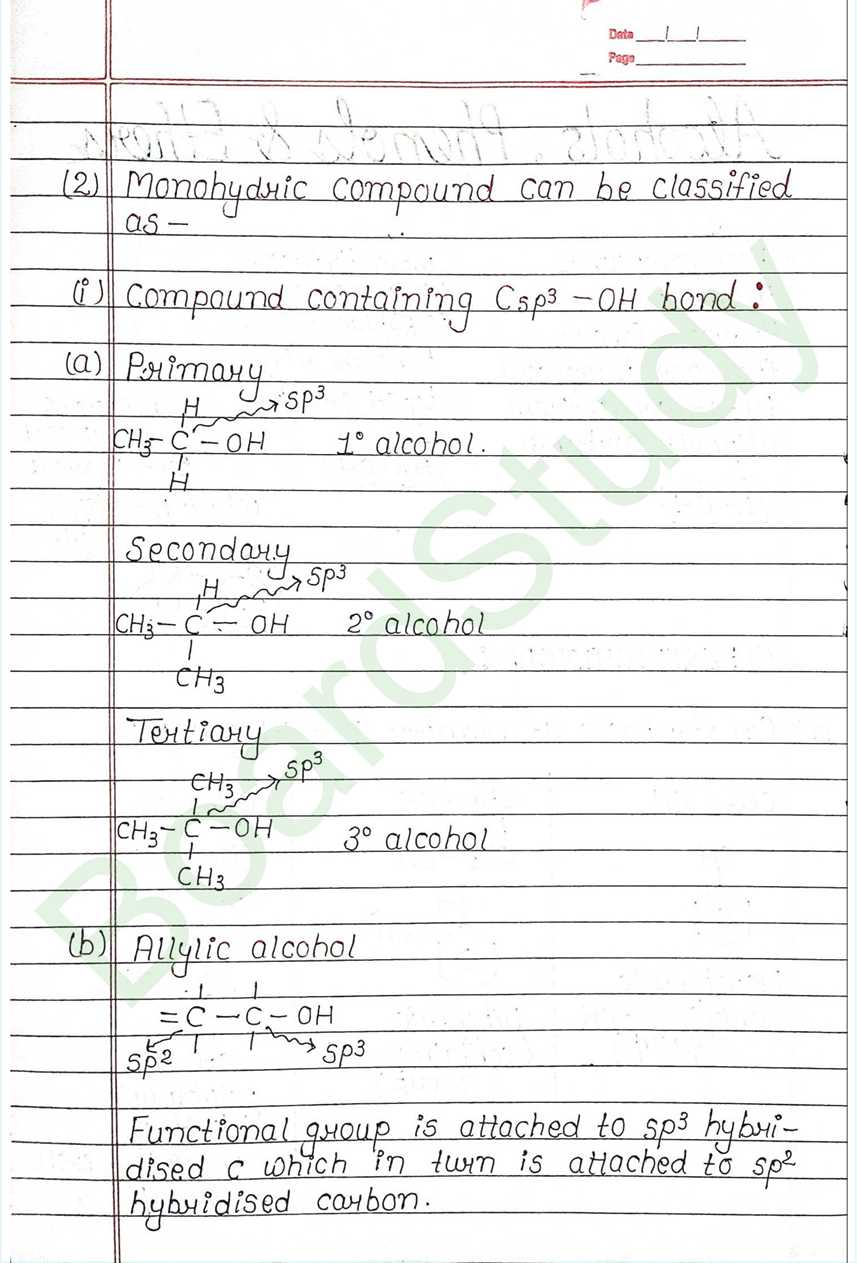 Date / /
Page
Alcohols, Phenols & Ethers
(2) Monohydric compound can be classified
as –
(i) Compound containing Csp³ – OH bond :
(a) Primary
H sp³
CH₃ – C – OH 1° alcohol.
H
Secondary
H sp³
CH₃ – C – OH 2° alcohol
CH₃
Tertiary
CH₃ sp³
CH₃ – C – OH 3° alcohol
CH₃
(b) Allylic alcohol
= C – C – OH
sp² sp³
Functional group is attached to sp³ hybri-
dised c which in turn is attached to sp²
hybridised carbon.
BoardStudy